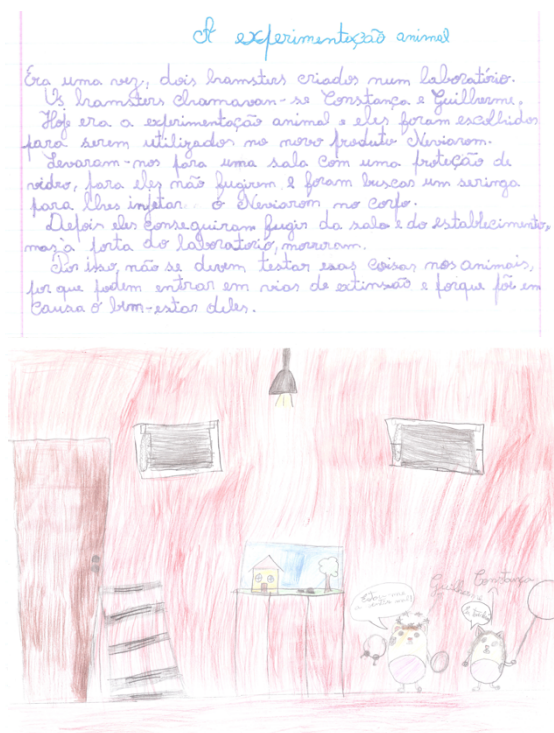 A experimentação animal
Era uma vez, dois hamsters criados num laboratório.
Os hamsters chamavam-se Constança e Guilherme.
Hoje era a experimentação animal e eles foram escolhidos
para serem utilizados no novo produto Neviarom.
Levaram-nos para uma sala com uma proteção de
vidro, para eles não fugirem e foram buscar um seringa
para lhes injetar o Neviarom no corpo.
Depois eles conseguiram fugir da sala e do establecimento,
mas à porta do laboratório, morreram.
Por isso, não se devem testar essas coisas nos animais,
por que podem entrar em vias de extinsão e porque põi em
causa o bem-estar deles.
Guilherme
Constança